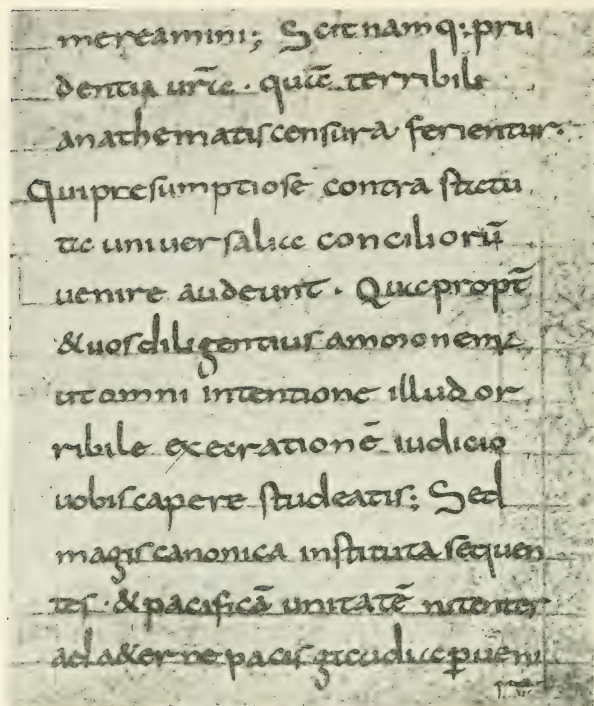 mereamini; Scit namq; pru
dentia uṝa . quia terribili
anathematis censura ferientur.
Qui presumptiose contra statu
ta uniuersalia conciliorū
uenire audeunt . Quapropt̄
& uos diligentius ammonemus
ut omni intentione illud or
ribile execrationē iudicio
uobis capere studeatis; Sed
magis canonica instituta sequen
tes . & pacificā unitatē nitentes
ad a&erne pacis gaudia p̲ueni